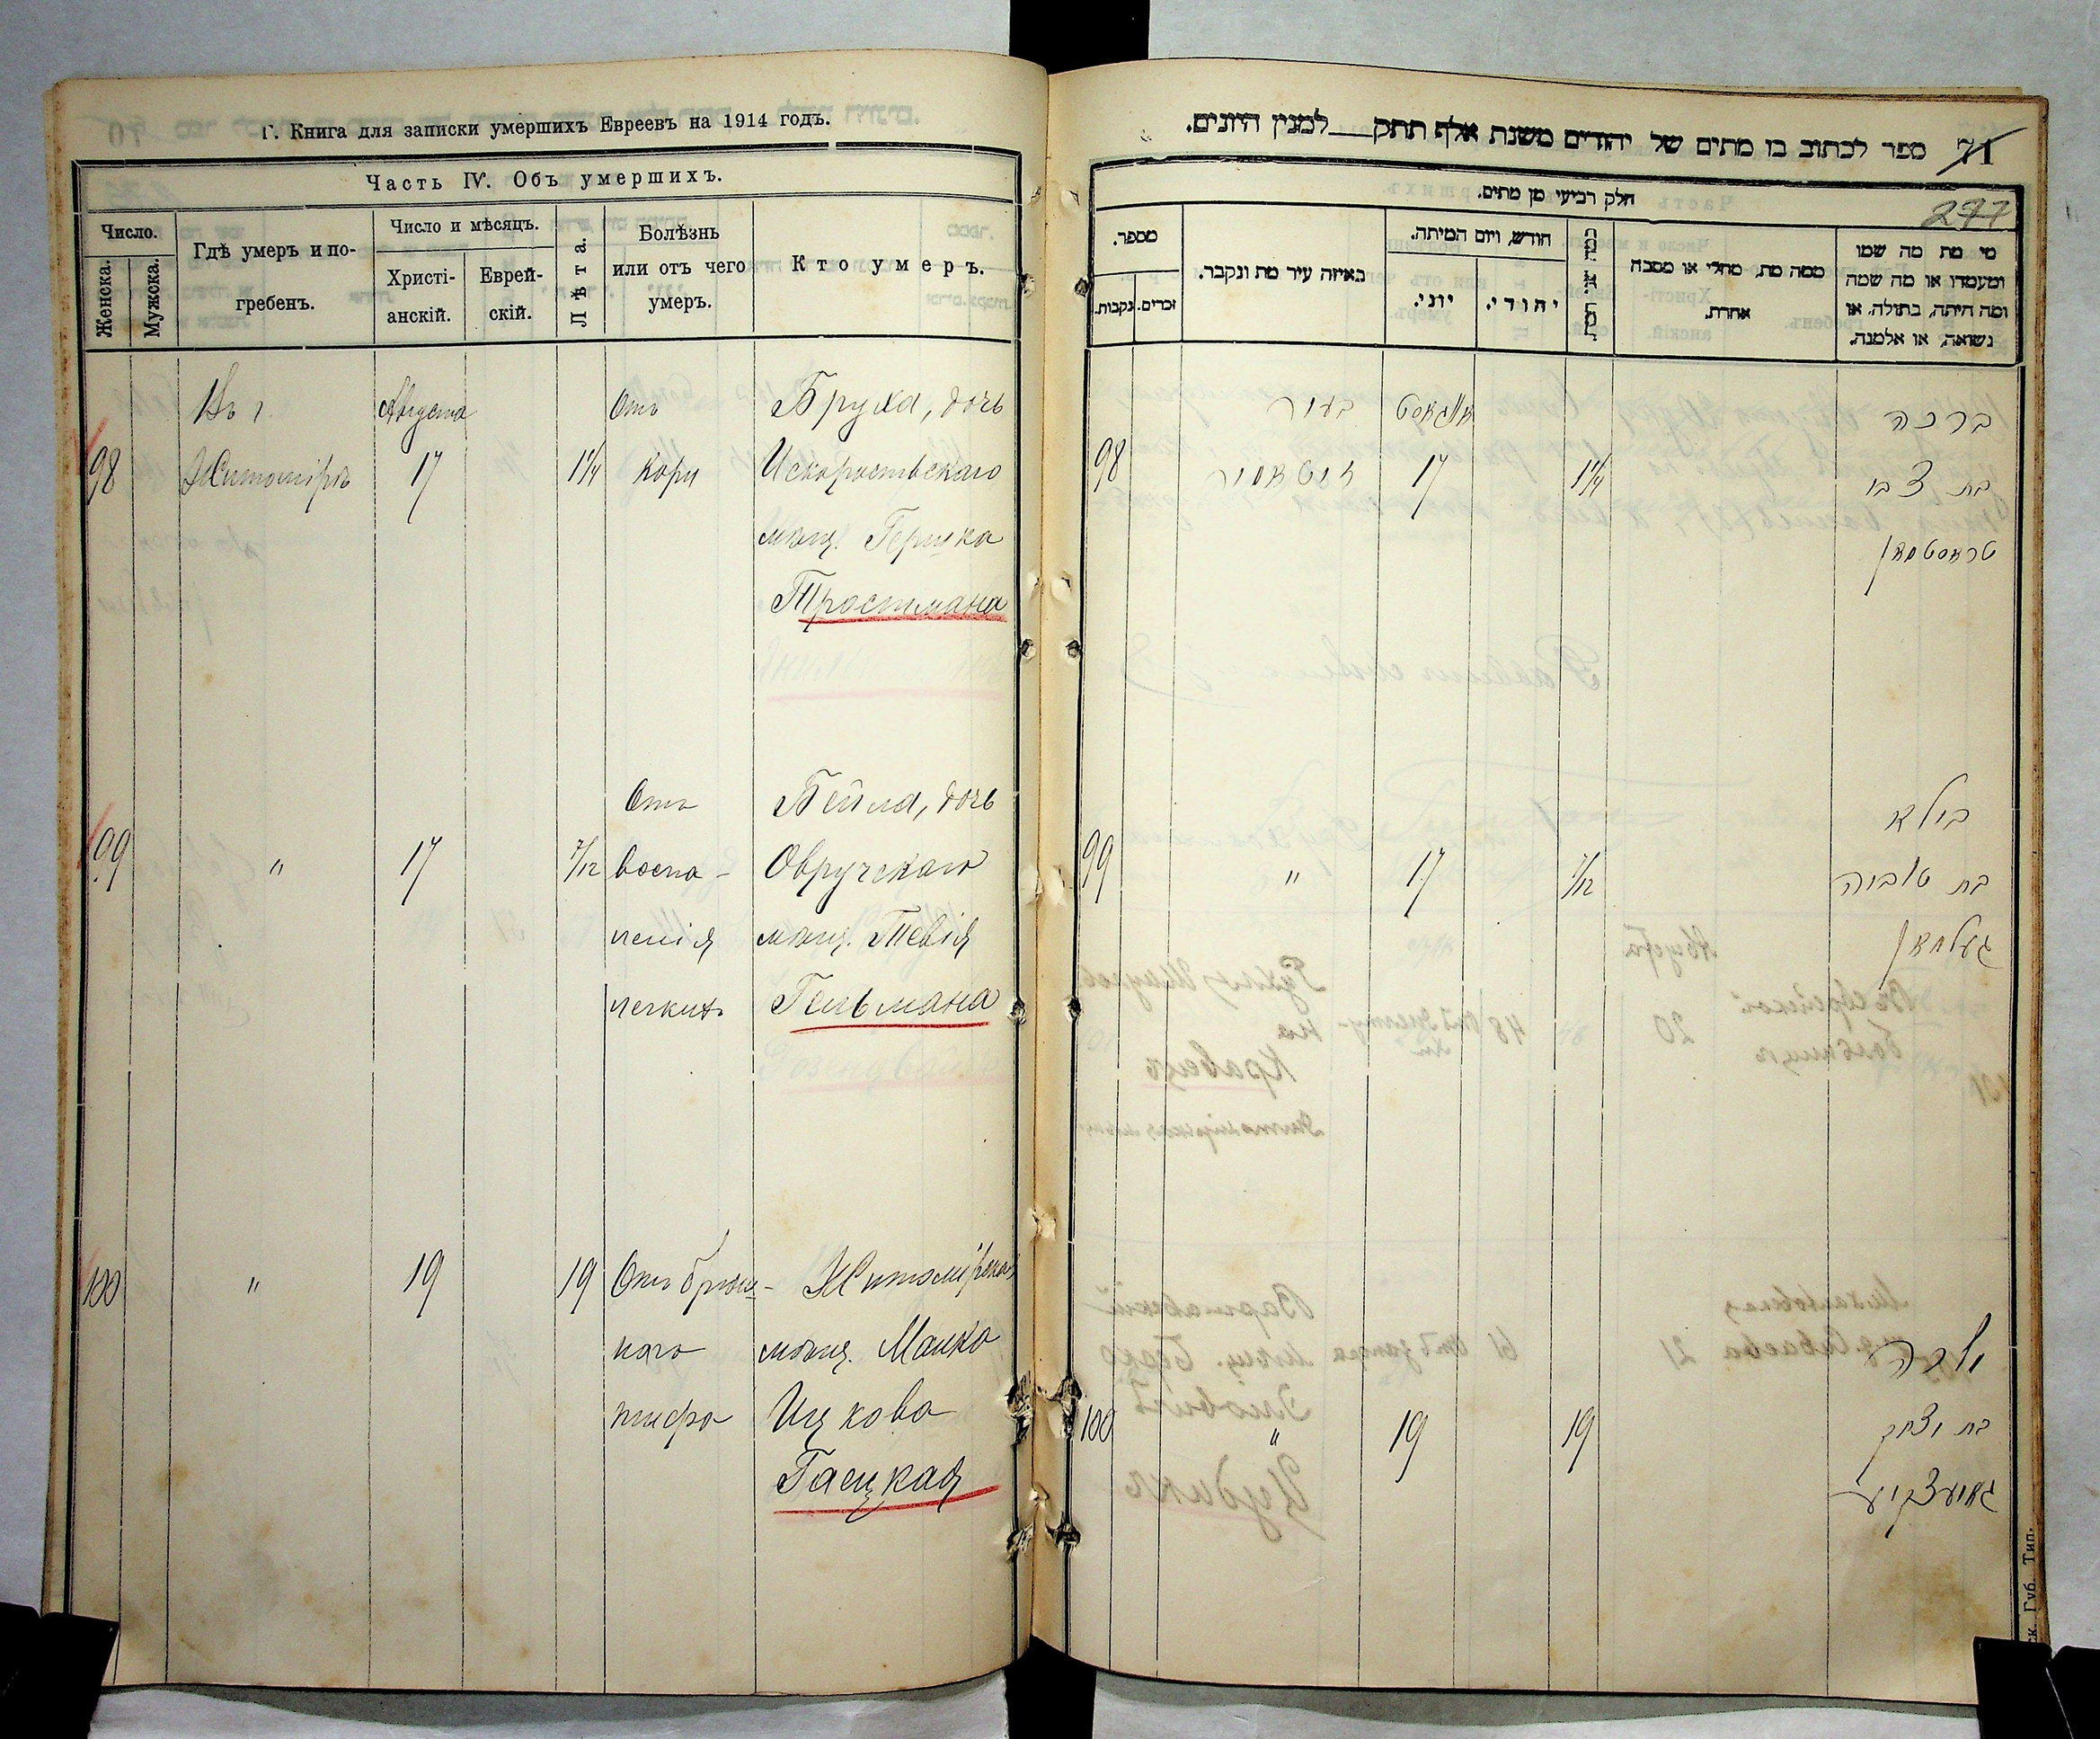 Г. Книга для записки умершихъ Евреевъ на 1914 годъ.
Часть IV. Объ умершихъ.
Число.
Женска.
Мужска.
Гдѣ умеръ и по-
гребенъ.
Число и мѣсяцъ.
Христі-
анскій.
Еврей-
скій.
Лѣта.
Болѣзнь
или отъ чего
умеръ.
Кто умеръ.
Въ г. Августа Отъ Бруха, дочь
98 Житомірѣ 17 1 1/4 кори Искоростьскаго
мѣщ. Гершка
Тростмана
Отъ Бейла, дочь
99 " 17 7/12 воспа- Овручскаго
ленія мѣщ. Тевія
легкихъ Гельмана
100 " 19 19 Отъ брюш- Житомірская
наго мѣщ. Малка
тифа Ицкова
Гаецкая
ספר לכתוב בו מתים של יהודים משנת אלף תתק למנין היונים.
71
277
חלק רביעי מן מתים.
מספר.
זכרים.
נקבות.
באיזה עיר מת ונקבר.
חודש, ויום המיתה.
יוני.
יהודי.
ממה מת, מחלי או מסבה
אחרת.
מי מת מה שמו
ומעמדו או מה שמה
ומה היתה, בתולה, או
נשואה, או אלמנה.
98 בעיר אווגאסט ברכה
זיטאמיר 17 1 1/4 בת צבי
טראסטמאן
99 " 17 7/12 ביילא
בת טוביה
געלמאן
100 " 19 19
בת יצחק
גאיעצקיע
ск. Губ. Тип.